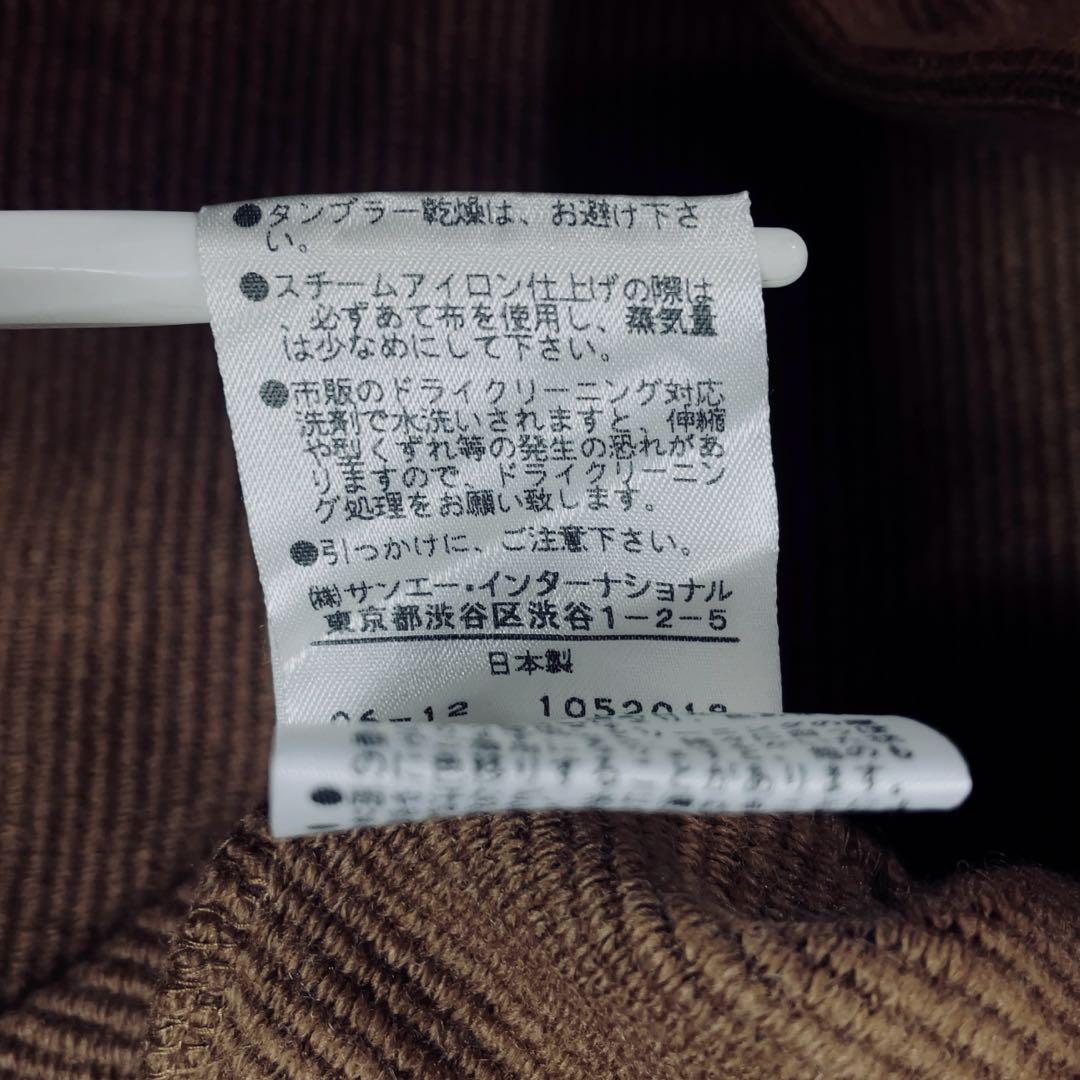 ●タンブラー乾燥は、お避け下さ
い。
●スチームアイロン仕上げの際は
、必ずあて布を使用し、蒸気量
は少なめにして下さい。
●市販のドライクリーニング対応
洗剤で水洗いされますと、伸縮
や型くずれ等の発生の恐れがあ
りますので、ドライクリーニン
グ処理をお願い致します。
●引っかけに、ご注意下さい。
㈱サンエー・インターナショナル
東京都渋谷区渋谷1-2-5
日本製
06-12 1052018
に色移りすることがあります。